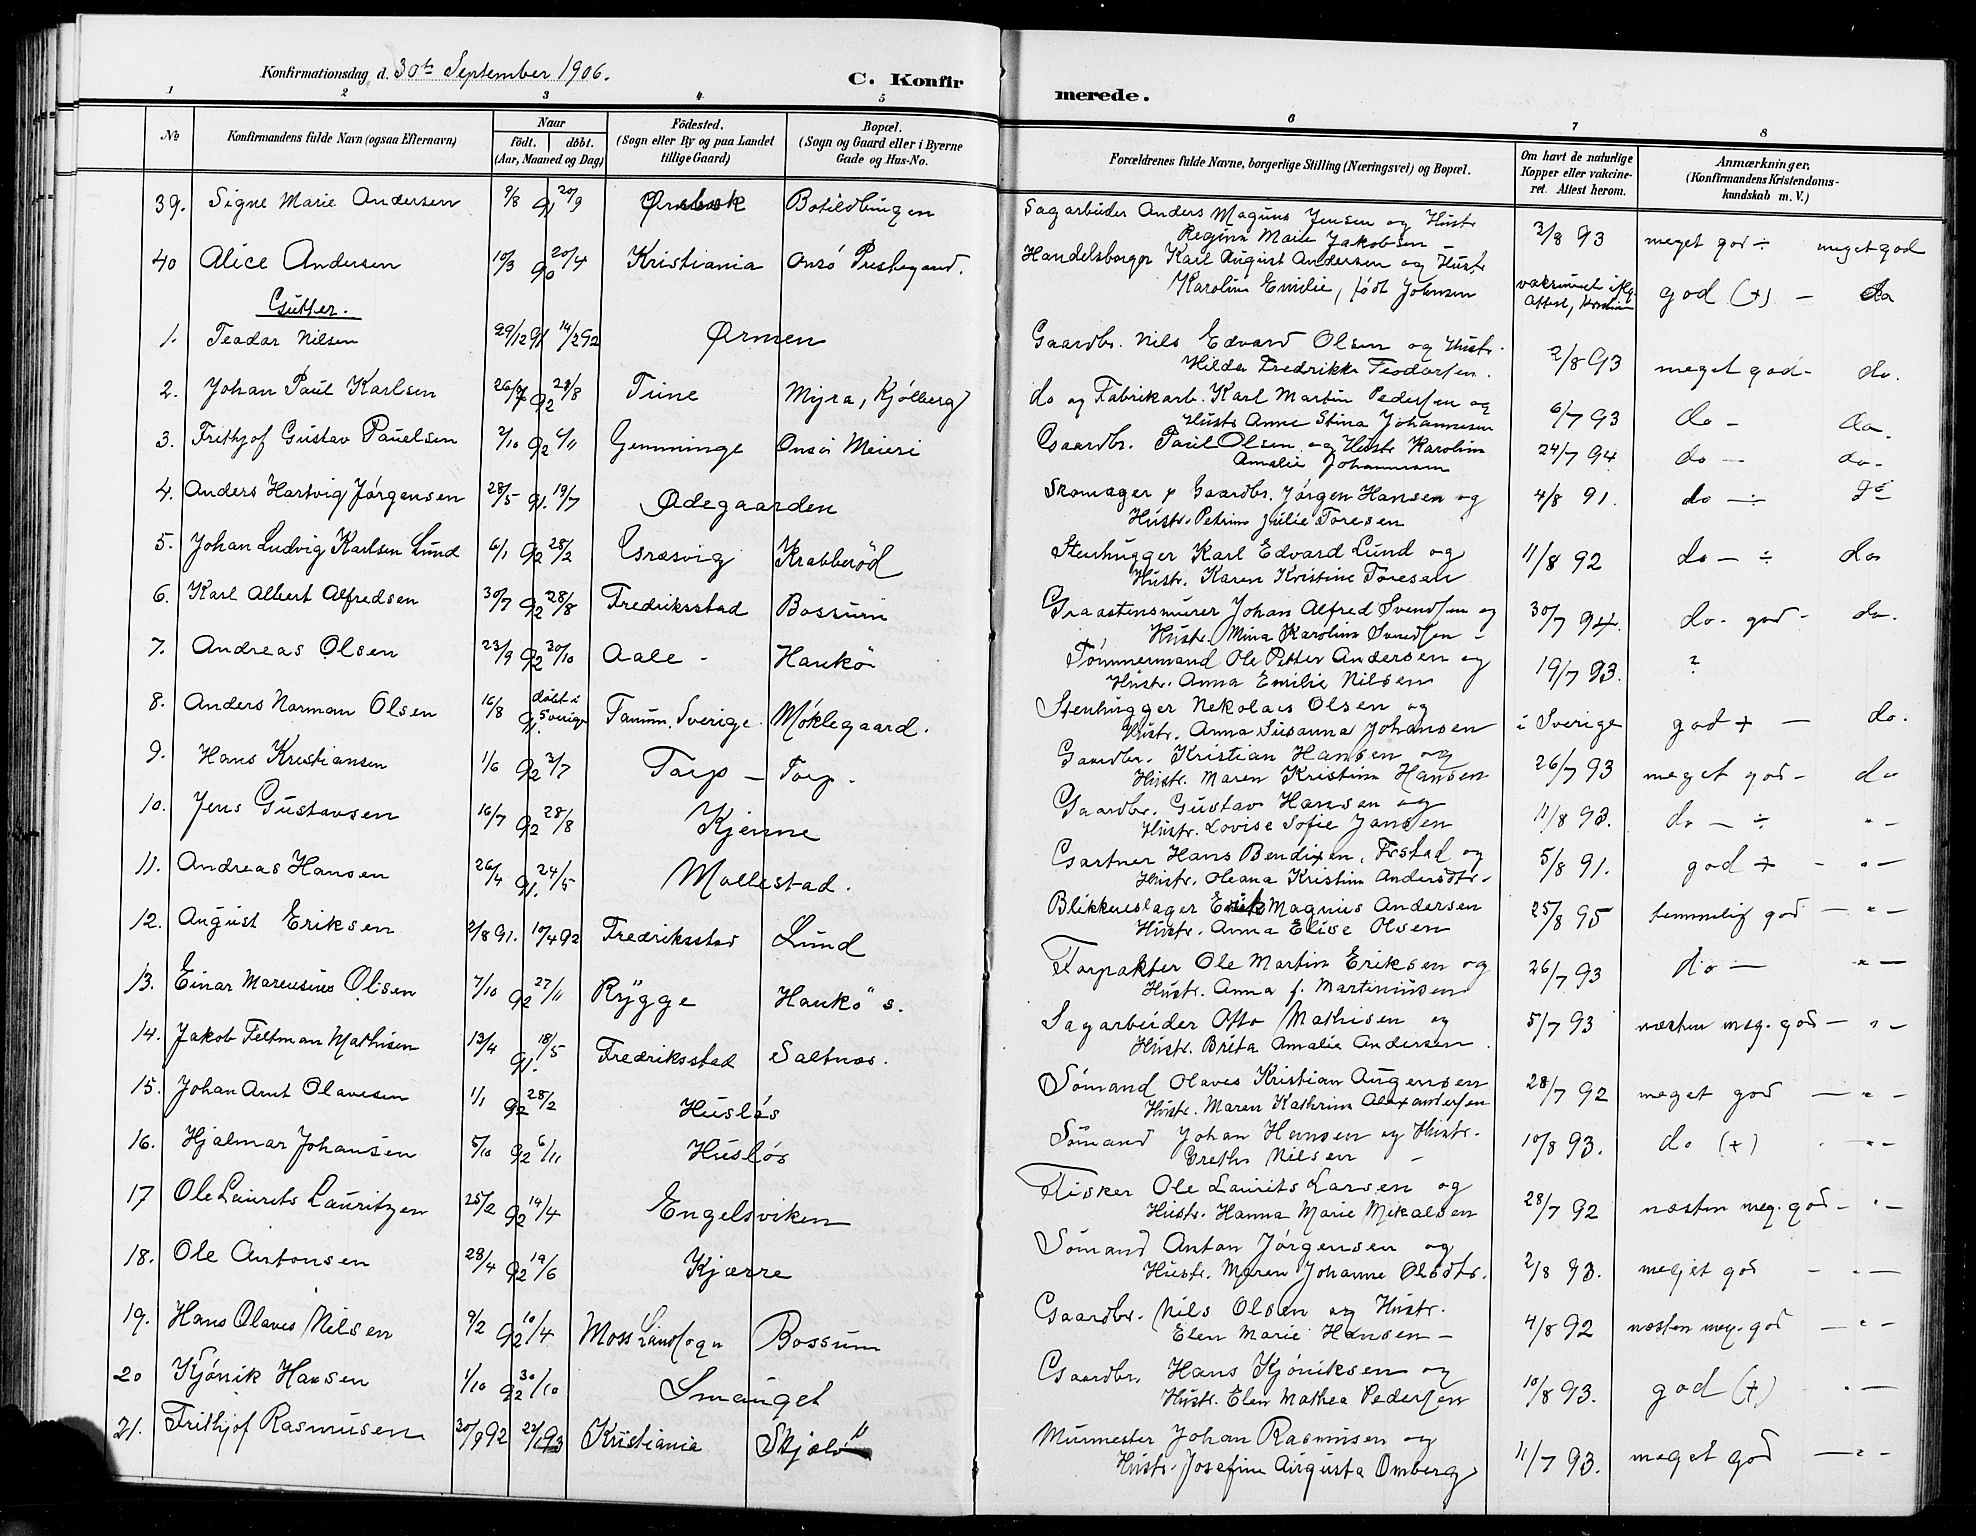 Konfirmationsdag d. 30te September 1906.
C. Konfir
merede.
1 2 3 4 5 6 7 8
No
Konfirmandens fulde Navn (ogsaa Efternavn)
Naar
født. døbt.
(Aar, Maaned og Dag)
Fødested.
(Sogn eller By og paa Landet
tillige Gaard)
Bopæl.
(Sogn og Gaard eller i Byerne
Gade og Hus-No.
Forældrenes fulde Navne, borgerlige Stilling (Næringsvei) og Bopæl.
Om havt de naturlige
Kopper eller vakcine-
ret. Attest herom.
Anmærkninger.
(Konfirmandens Kristendoms-
kundskab m. V.)
39. Signe Marie Andersen 9/8 91 20/9 Botildbingen Sagarbeider Anders Magnus Jensen og Hustr
Regina Marie Jakobsen - 3/8 93 meget god ÷ meget god
40 Alice Andersen 10/3 90 20/4 Kristiania Onsö Prestegaard. Handelsborger Karl August Andersen og Hustr
Karoline Emilie, født Johnsen god (+) - do
Gutter.
1. Teodor Nilsen 29/12 91 14/2 92 Ørmen Gaardbr. Nils Edvard Olsen og Hustr.
Hilda Fredrikke Teodorsen. 2/8 93 meget god - do.
2. Johan Paul Karlsen 26/7 92 28/8 Trine Myra, Kjølberg do og Fabrikarb. Karl Martin Pedersen og
Hustr Anne Stina Johannesen 6/7 93 do - do.
3. Frithjof Gustav Pauelsen 2/10 92 6/11 Gemminge Onsö Meieri Gaardbr. Paul Olsen og Hustr Karoline
Amalie Johannesen 24/7 94 do - do-
4. Anders Hartvig Jørgensen 28/5 91. 19/7 Ødegaarden Skomager & Gaardbr. Jørgen Hansen og
Hustr. Petrine Julie Toresen 4/8 91. do - ÷ do
5. Johan Ludvig Karlsen Lund 6/1 92 28/2 Græsvig Krabberød Stenhugger Karl Edvard Lund og
Hustr. Karen Kristine Toresen 11/8 92 do - ÷ do
6. Karl Albert Alfredsen 30/7 92 28/8 Fredriksstad Bossum Graastensmurer Johan Alfred Svendsen og
Hustr. Mina Karoline Svendsen - 30/7 94. do. god - do.
7. Andreas Olsen 23/9 92 30/10 Aale - Hankö Tömmermand Ole Petter Andersen og
Hustr. Anna Emilie Nilsen 19/7 93. ?
8. Anders Norman Olsen 16/8 91. døbt i
Sverige Tanum. Sverige. Møklegaard. Stenhugger Nekolais Olsen og
Hustr. Anna Susanna Johansen i Sverige god + - do.
9. Hans Kristiansen 1/6 92 3/7 Torp - Torp. Gaardbr. Kristian Hansen og
Hustr. Maren Kristine Hansen 26/7 93 meget god - do
10. Jens Gustavsen 16/7 92 28/8 Kjenne Gaardbr. Gustav Hansen og
Hustr. Lovise Sofie Jansen 11/8 93. do - ÷ " -
11. Andreas Hansen 26/4 91. 24/5 Mallestad. Gartner Hans Bendixen, Frstad og
Hustr. Oleana Kristine Andersdtr. 5/8 91. god + - " -
12. August Eriksen 2/8 91. 10/4 92 Fredriksstad Lund Blikkenslager Erik Magnus Andersen
Hustr. Anna Elise Olsen 25/8 95 temmelig god - " -
13. Einar Marensius Olsen 7/10 92 27/11 Rygge Hankö s. Forpakter Ole Martin Eriksen og
Hustr. Anna f. Martiniusen 26/7 93 do - " -
14. Jakob Feltman Mathisen 13/4 91. 18/5 Fredriksstad Saltnæs. Sagarbeider Otto Mathisen og
Hustr. Brita Amalie Andersen. 5/7 93 næsten meg. god - " -
15. Johan Arnt Olavesen 1/1 92 28/2 Husløs Sömand Olaves Kristian Augensen
Hustr. Maren Kathrine Alexandersen 28/7 92 meget god - " -
16. Hjalmar Johansen 5/10 92 6/11 Husløs Sömand Johan Hansen og Hustr.
Grethe Nilsen - 10/8 93. do (+) . " -
17 Ole Laurits Lauritzen 25/2 92 14/4 Engelsviken Fisker Ole Laurits Larsen og
Hustr. Hanna Marie Mikalsen 28/7 92 næsten meg. god - " -
18. Ole Antonsen 28/4 92 19/6 Kjærre Sömand Anton Jörgensen og
Hustr. Maren Johanne Olsdtr. 2/8 93. meget god - " -
19. Hans Olaves Nilsen 9/2 92 10/4 Moss Landsogn Bossum Gaardbr. Nils Olsen og Hustr.
Elen Marie Hansen - 4/8 92 næsten meg. god - " -
20 Kjönik Hansen 1/10 92 30/10 Smauget Gaardbr. Hans Kjöniksen og
Hustr. Elen Mathea Pedersen 10/8 93. god (+) . " -
21. Frithjof Rasmusen 30/9 92 Kristiania Murmester Johan Rasmusen og
Hustr. Josefine Augusta Omberg 11/7 93. meget god - " -